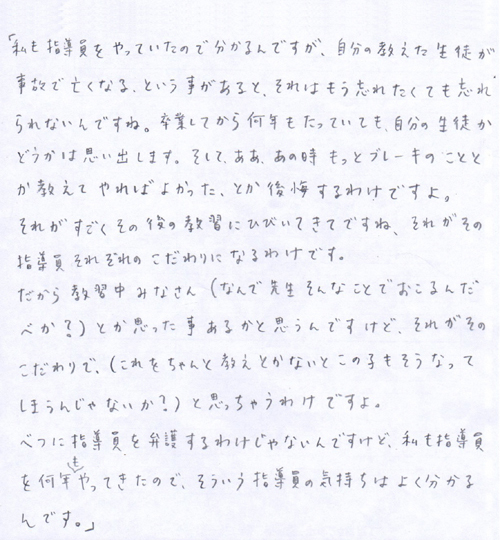 「私も指導員をやっていたので分かるんですが、自分の教えた生徒が
事故で亡くなる、という事があると、それはもう忘れたくても忘れ
られないんですね。卒業してから何年もたっていても、自分の生徒か
どうかは思い出します。そして、ああ、あの時もっとブレーキのことと
か教えてやればよかった、とか後悔するわけですよ。
それがすごくその後の教習にひびいてきてですね、それがその
指導員それぞれのこだわりになるわけです。
だから教習中みなさん(なんで先生そんなことでおこるんだ
べか?)とか思った事あるかと思うんですけど、それがその
こだわりで、(これをちゃんと教えとかないとこの子もそうなって
しまうんじゃないか?)と思っちゃうわけですよ。
べつに指導員を弁護するわけじゃないんですけど、私も指導員
を何年もやってきたので、そういう指導員の気持ちはよく分かる
んです。」